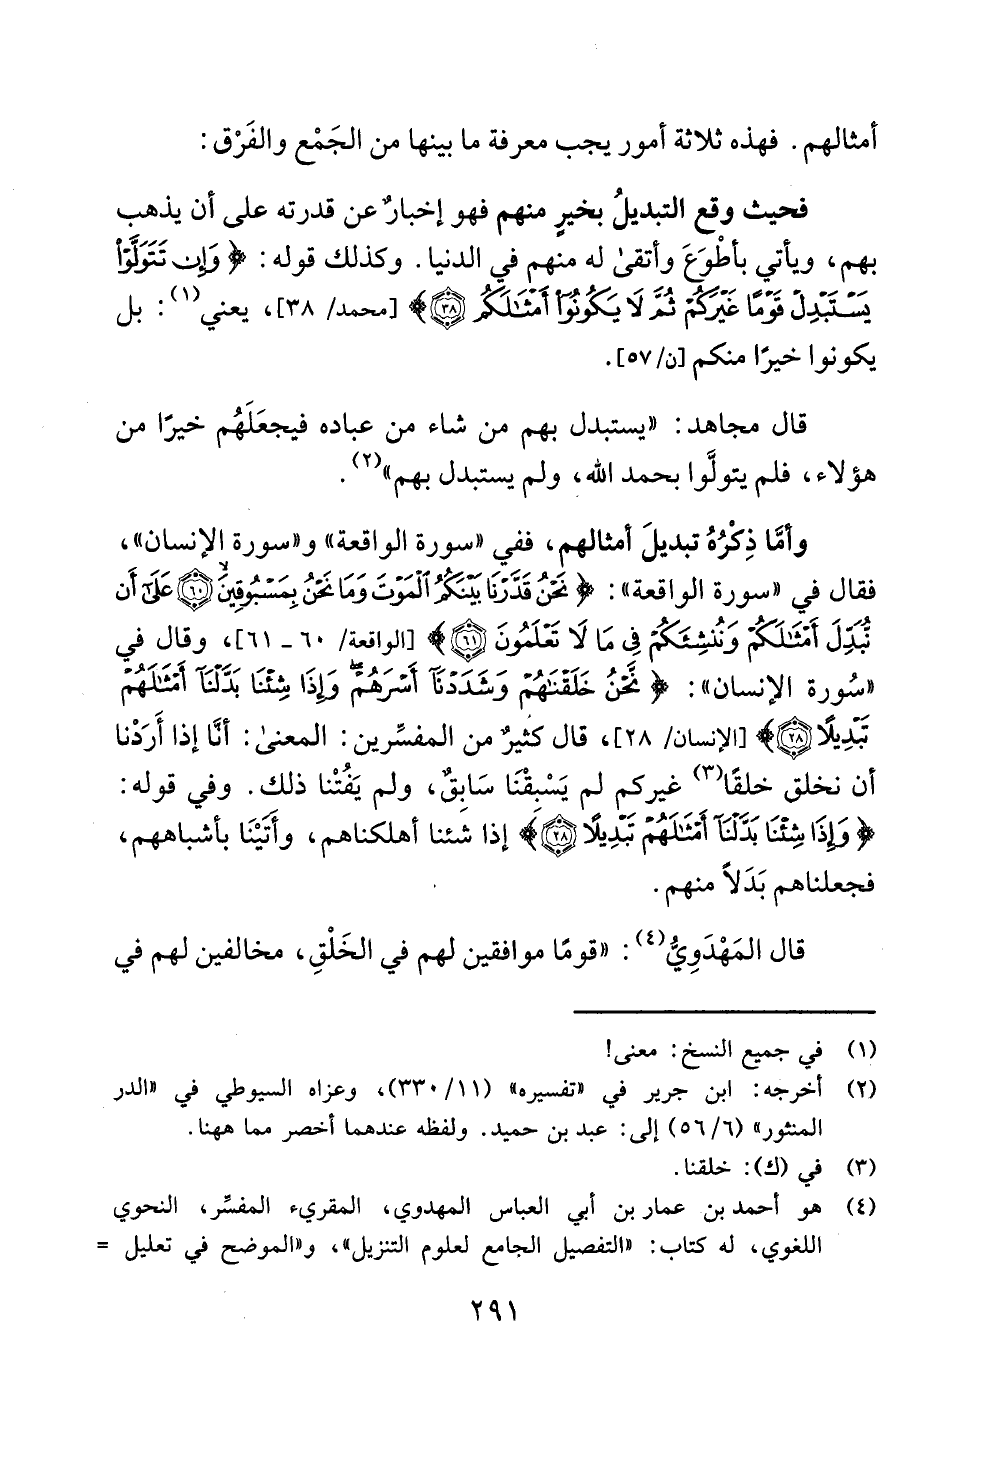 أمثالهم. فهذه ثلاثة أمور يجب معرفة ما بينها من الجَمْع والفَرْق:
فحيث وقع التبديلُ بخيرٍ منهم فهو إخبارٌ عن قدرته على أن يذهب
بهم، ويأتي بأطْوَعَ وأتقىٰ له منهم في الدنيا. وكذلك قوله: ﴿ وَإِن تَتَوَلَّوْا۟
يَسْتَبْدِلْ قَوْمًا غَيْرَكُمْ ثُمَّ لَا يَكُونُوٓا۟ أَمْثَـٰلَكُم ﴿٣٨﴾ ﴾ [محمد/ ٣٨]، يعني(١): بل
يكونوا خيرًا منكم [ن/٥٧].
قال مجاهد: «يستبدل بهم من شاء من عباده فيجعَلَهُم خيرًا من
هؤلاء، فلم يتولَّوا بحمد الله، ولم يستبدل بهم»(٢).
وأمَّا ذِكْرُهُ تبديلَ أمثالهم، ففي «سورة الواقعة» و«سورة الإنسان»،
فقال في «سورة الواقعة»: ﴿ نَحْنُ قَدَّرْنَا بَيْنَكُمُ ٱلْمَوْتَ وَمَا نَحْنُ بِمَسْبُوقِينَ ﴿٦٠﴾ عَلَىٰٓ أَن
نُّبَدِّلَ أَمْثَـٰلَكُمْ وَنُنشِئَكُمْ فِى مَا لَا تَعْلَمُونَ ﴿٦١﴾ ﴾ [الواقعة/ ٦٠ ـ ٦١]، وقال في
«سُورة الإنسان»: ﴿ نَّحْنُ خَلَقْنَـٰهُمْ وَشَدَدْنَآ أَسْرَهُمْ ۖ وَإِذَا شِئْنَا بَدَّلْنَآ أَمْثَـٰلَهُمْ
تَبْدِيلًا ﴿٢٨﴾ ﴾ [الإنسان/ ٢٨]، قال كثيرٌ من المفسِّرين: المعنىٰ: أنَّا إذا أَرَدْنا
أن نخلق خلقًا(٣) غيركم لم يَسْبِقْنَا سَابِقٌ، ولم يَفُتْنا ذلك. وفي قوله:
﴿ وَإِذَا شِئْنَا بَدَّلْنَآ أَمْثَـٰلَهُمْ تَبْدِيلًا ﴿٢٨﴾ ﴾ إذا شئنا أهلكناهم، وأَتَيْنَا بأشباههم،
فجعلناهم بَدَلاً منهم.
قال المَهْدَوِيُّ(٤): «قومًا موافقين لهم في الخَلْقِ، مخالفين لهم في
(١) في جميع النسخ: معنى!
(٢) أخرجه: ابن جرير في «تفسيره» (١١/ ٣٣٠)، وعزاه السيوطي في «الدر
المنثور» (٥٦/٦) إلى: عبد بن حميد. ولفظه عندهما أخصر مما ههنا.
(٣) في (ك): خلقنا.
(٤) هو أحمد بن عمار بن أبي العباس المهدوي، المقريء المفسِّر، النحوي
اللغوي، له كتاب: «التفصيل الجامع لعلوم التنزيل»، و«الموضح في تعليل =
٢٩١